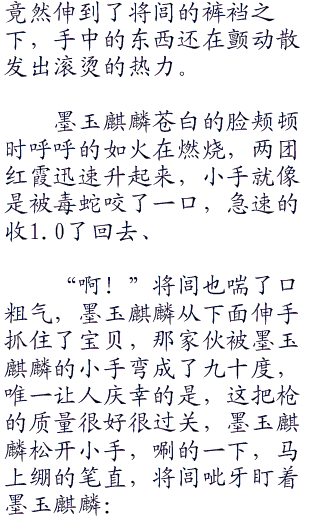 竟然伸到了将闾的裤裆之
下，手中的东西还在颤动散
发出滚烫的热力。
墨玉麒麟苍白的脸颊顿
时呼呼的如火在燃烧，两团
红霞迅速升起来，小手就像
是被毒蛇咬了一口，急速的
收1.0了回去、
“啊！”将闾也喘了口
粗气，墨玉麒麟从下面伸手
抓住了宝贝，那家伙被墨玉
麒麟的小手弯成了九十度，
唯一让人庆幸的是，这把枪
的质量很好很过关，墨玉麒
麟松开小手，唰的一下，马
上绷的笔直，将闾呲牙盯着
墨玉麒麟：